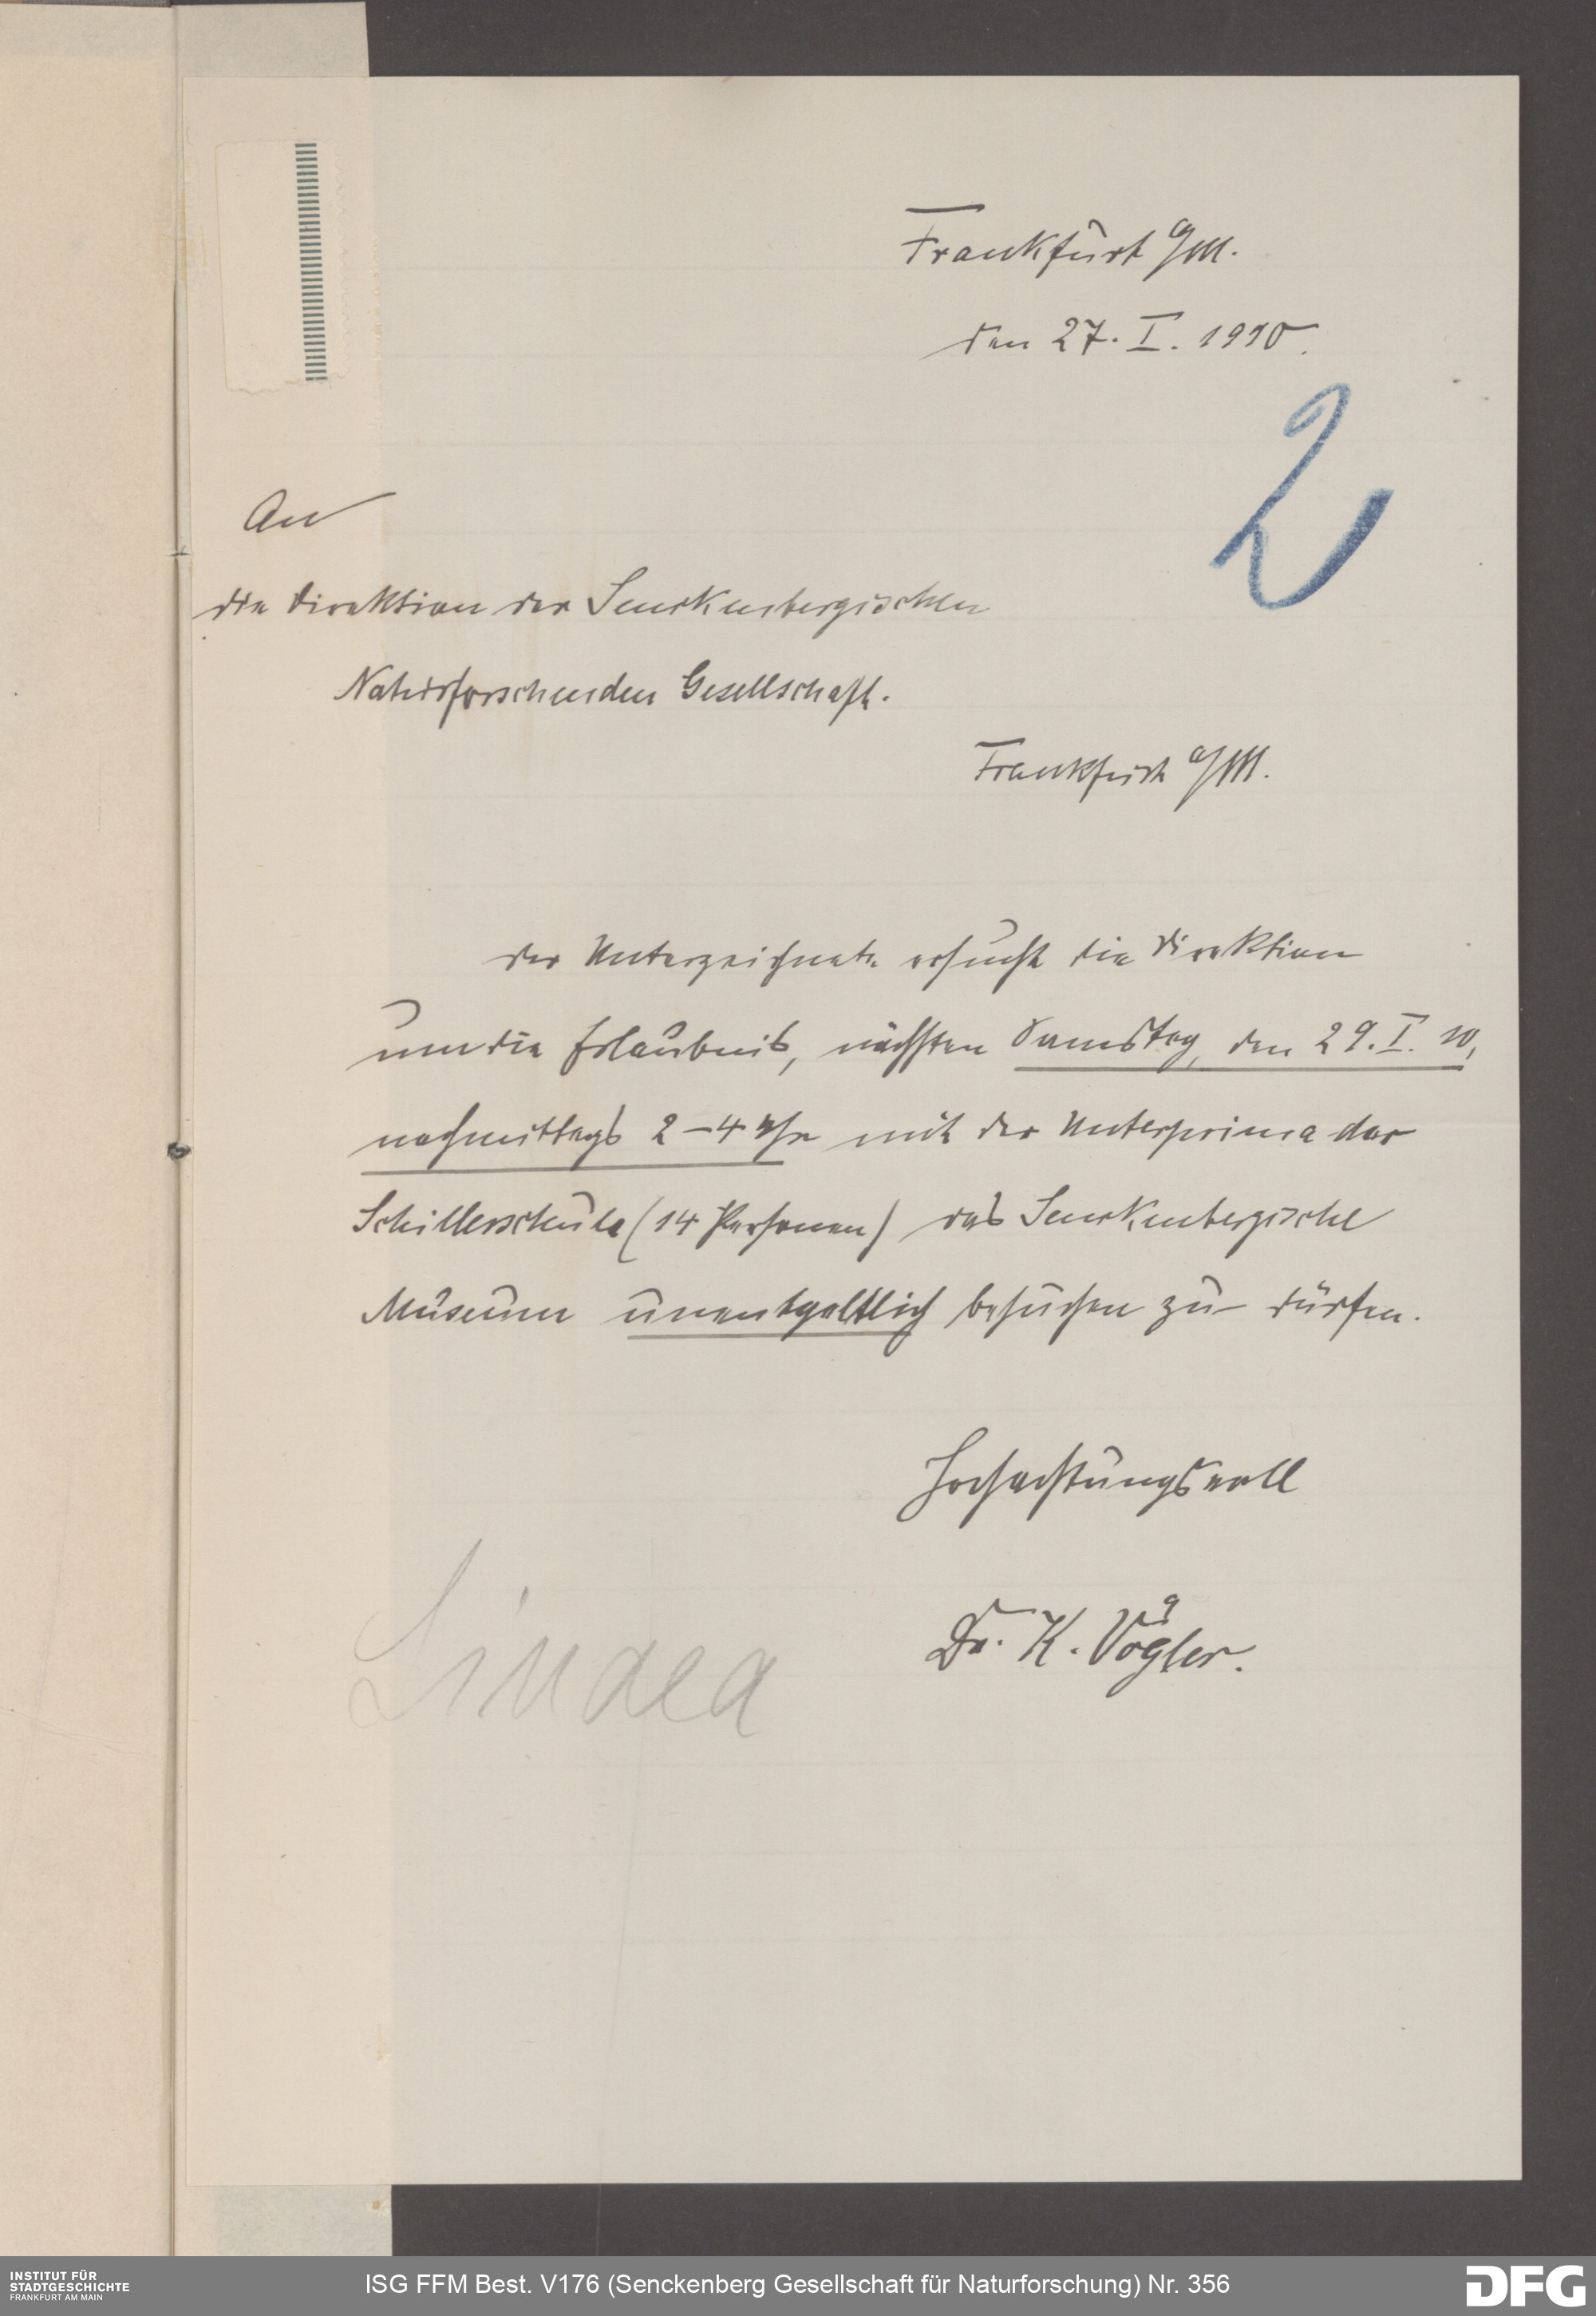 Frankfurt a/M.
den 27. I. 1910.
2
An
die Direktion der Senckenbergischen
Naturforschenden Gesellschaft.
Frankfurt a/M.
Der Unterzeichnete ersucht die Direktion
um die Erlaubnis, nächsten Samstag, den 29. I. 10,
nachmittags 2–4 Uhr mit der Unterprima der
Schillerschule (14 Personen) das Senckenbergische
Museum unentgeltlich besuchen zu dürfen.
Hochachtungsvoll
Dr. K. Vogler.
INSTITUT FÜR
STADTGESCHICHTE
FRANKFURT AM MAIN
ISG FFM Best. V176 (Senckenberg Gesellschaft für Naturforschung) Nr. 356
DFG